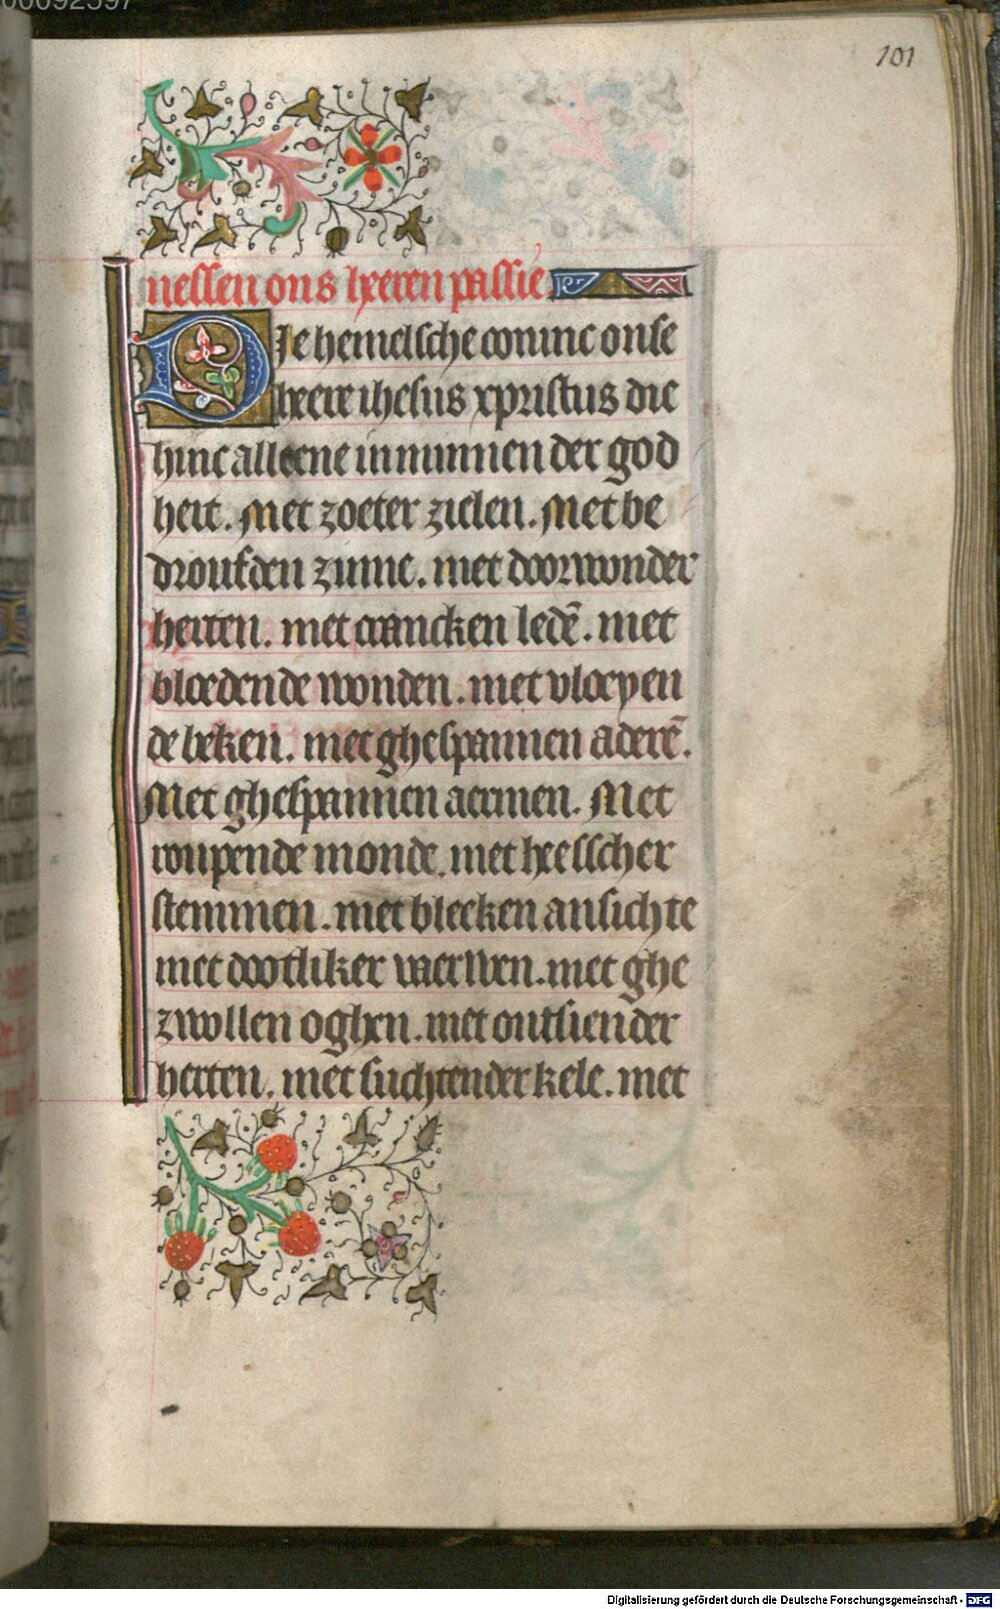 00092597
101
nessen ons heeren passie.
Die hemelsche coninc onse
heere ihesus xpristus die
hinc alleene in minnen der god
heit. Met zoeter zielen. Met be
droufden zinne. met doorwonder
herten. met crancken ledē. met
bloedende wonden. met vloeyen
de beken. met ghespannen aderē.
Met ghespannen aermen. Met
roupende monde. met heesscher
stemmen. met bleeken ansichte
met dootliker vaerwen. met ghe
zwollen oghen. met ontsiender
herten. met suchtender kele. met
Digitalisierung gefördert durch die Deutsche Forschungsgemeinschaft - DFG